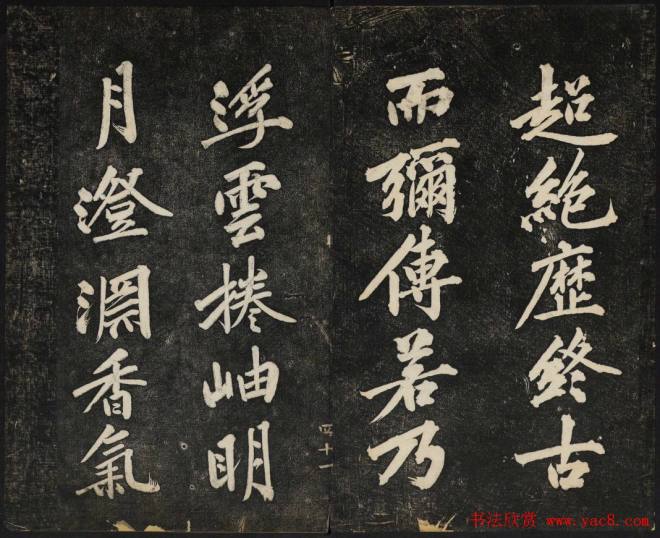 超絶歴終古
而彌傳若乃
浮雲捲岫明
月澄淵香氣
四十一
书法欣赏 www.yac8.com